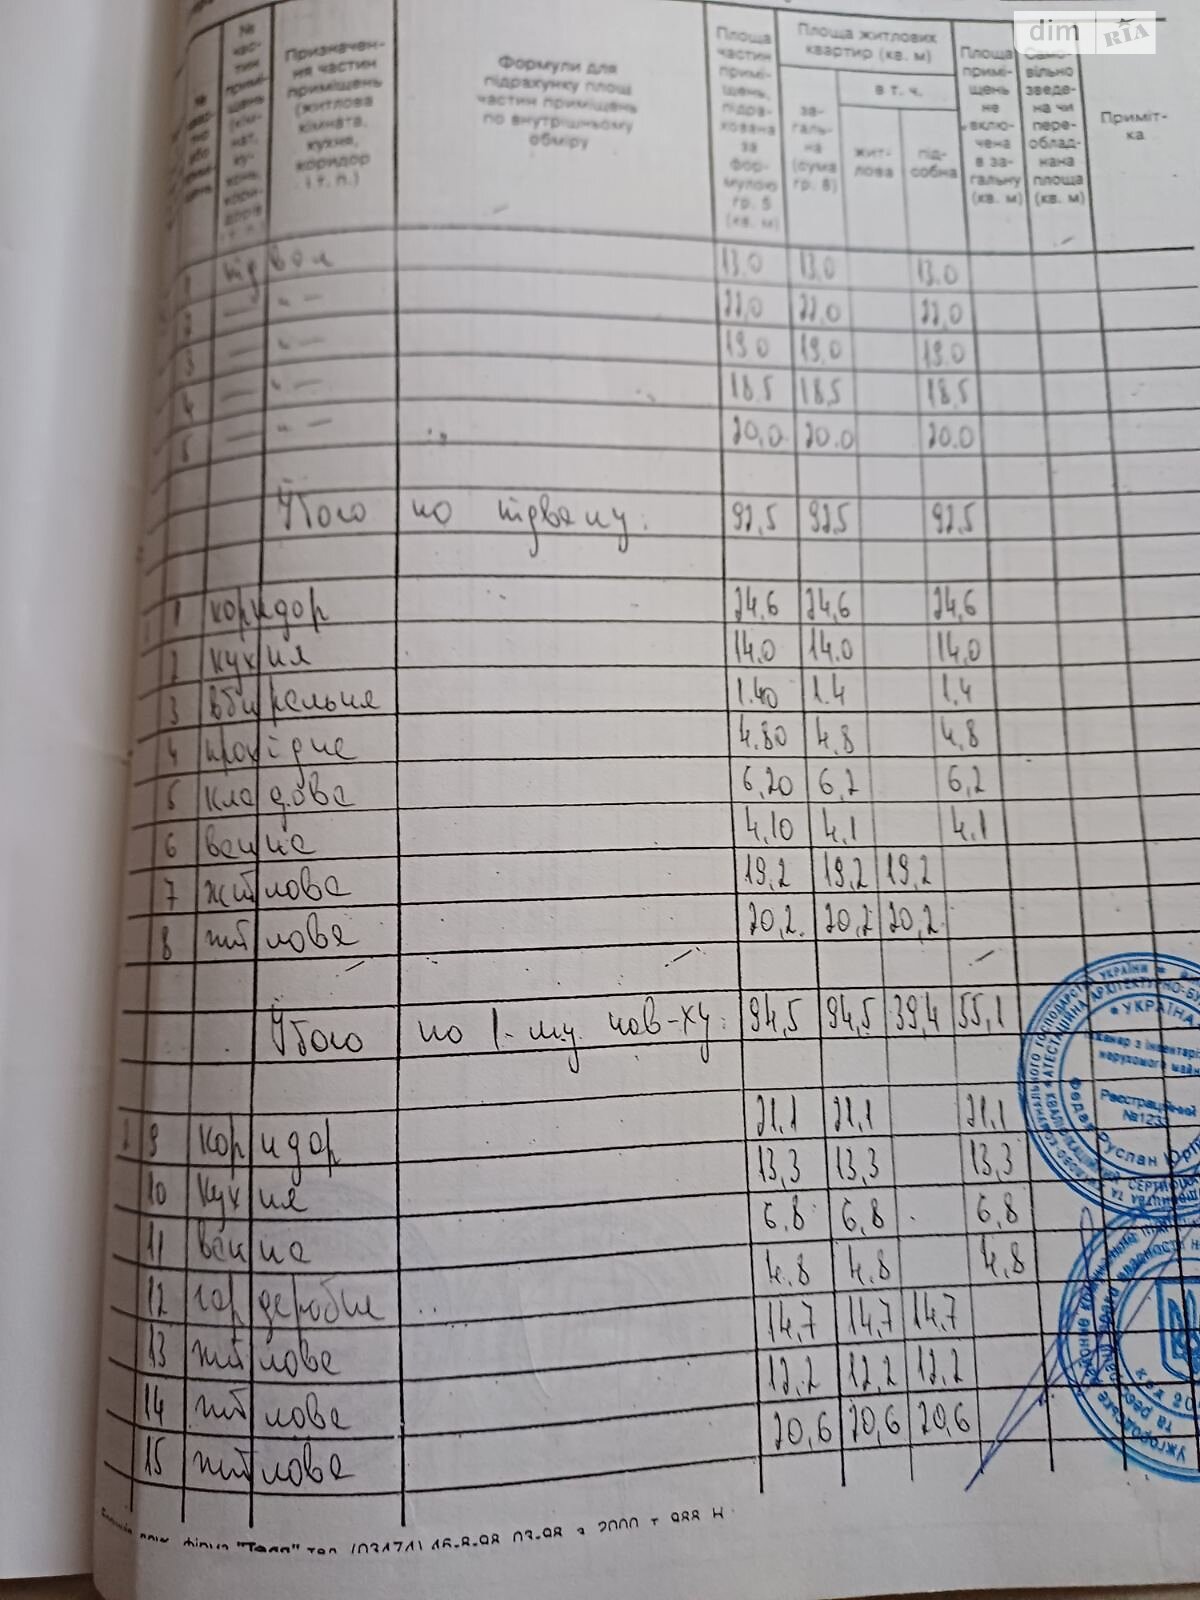 dim RIA
№ час- тин примі- щень (кім- нат, ку- хонь, кори- дорів і т. п.)
Призначен- ня частин приміщень (житлова кімната, кухня, коридор і т. п.)
Формули для підрахунку площ частин приміщень по внутрішньому обміру
Площа частин примі- щень, підра- хована за фор- мулою гр. 5 (кв. м)
Площа житлових квартир (кв. м)
за- галь- на (сума гр. 6)
в т. ч.
жит- лова
під- собна
Площа примі- щень не вклю- чена в за- гальну (кв. м)
Само- вільно зведе- на чи пере- облад- нана площа (кв. м)
Приміт- ка
1 підвал 13.0 13.0 13.0
2 — „ — 22,0 22,0 22,0
3 — „ — 19.0 19.0 19.0
4 — „ — 18.5 18,5 18,5
5 — „ — 20,0 20.0 20.0
Усього по підвалу: 92,5 92,5 92,5
1 коридор 24,6 24,6 24,6
2 кухня 14.0 14.0 14.0
3 вбиральня 1.40 1.4 1.4
4 прохідне 4.80 4,8 4,8
5 кладова 6,20 6,2 6,2
6 ванна 4,10 4,1 4,1
7 житлова 19,2 19,2 19,2
8 житлова 20,2 20,2 20,2
Усього по 1-му пов-ху: 94,5 94,5 39,4 55,1
9 коридор 21,1 21,1 21,1
10 кухня 13,3 13,3 13,3
11 ванна 6,8 6,8 6,8
12 гардеробне 4,8 4,8 4,8
13 житлова 14,7 14,7 14,7
14 житлова 12,2 12,2 12,2
15 житлова 20,6 20,6 20,6
УКРАЇНА
Інженер з інвентари
нерухомого майн
Реєстраційний
№123
Руслан Юрі